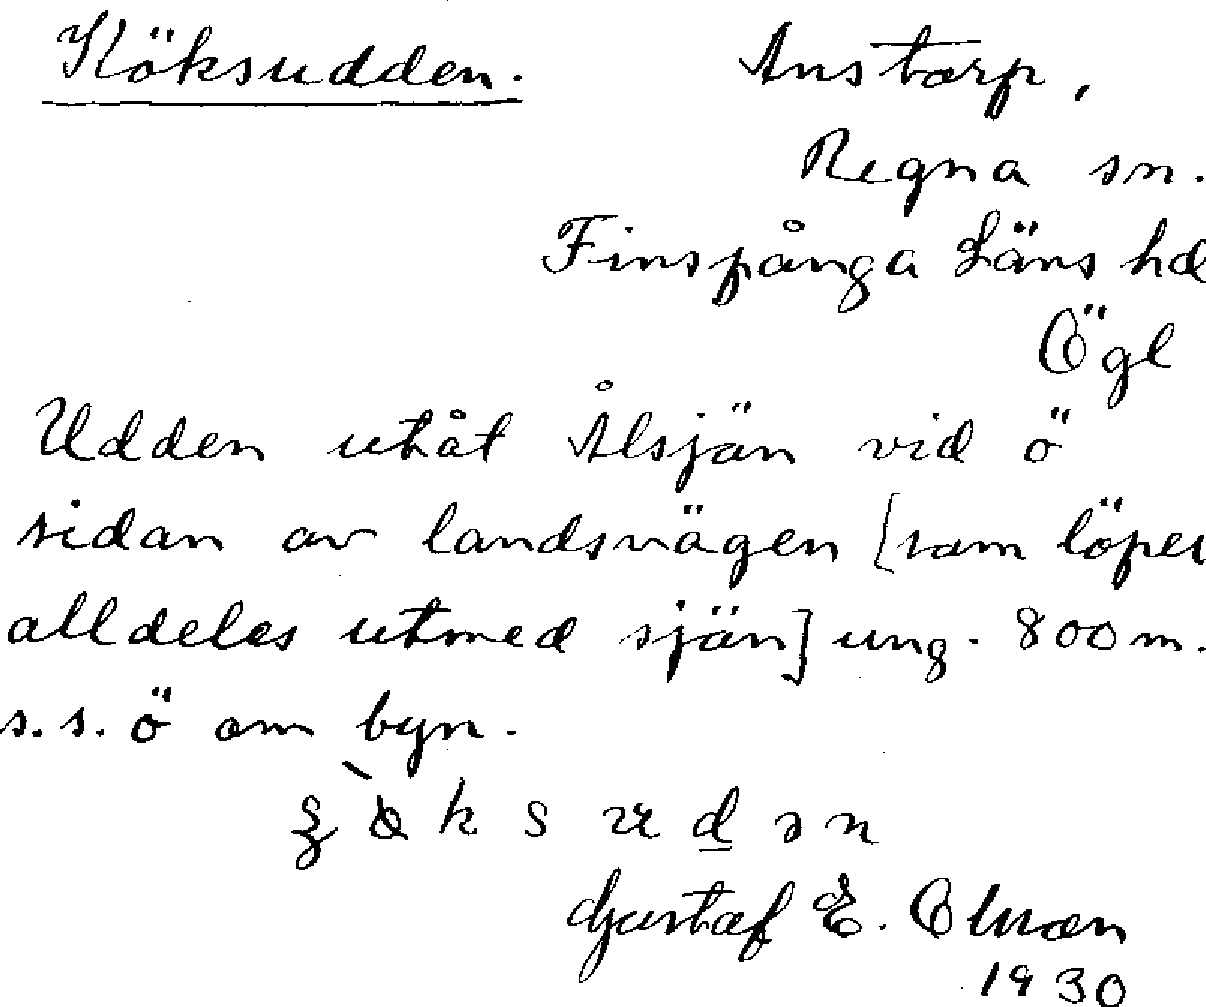 Köksudden.
Anstorp,
Regna sn.
Finspånga Läns hd
Ögl
Udden utåt Ålsjön vid ö
sidan av landsvägen [som löper
alldeles utmed sjön] ung. 800 m.
s.s.ö om byn.
Gustaf E. Olson
1930